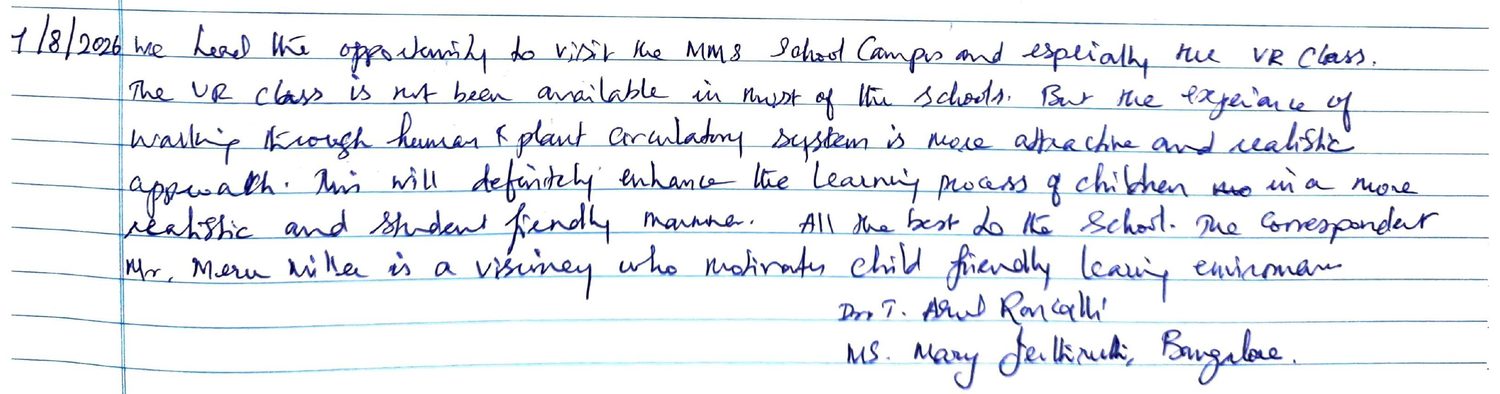 1/8/2026 We had the opportunity to visit the MMS School Campus and espcially the VR Class.
The VR class is not been available in most of the schools. But the expeiance of
walking through human & plant circulatory system is more attractive and realistic
approach. This will definitely enhance the learning process of children in a more
realistic and student fiendly manner. All the best to the School. The Correspondent
Mr. is a who motivates child friendly learing
Dr. T. Arul Roncalli
MS. Mary Bangalore.